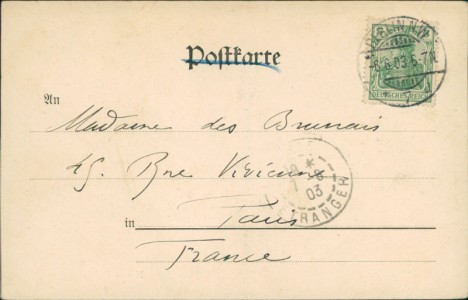 BERLIN N.W.
6.8.03.6-7N.
DEUTSCHES REICH
Postkarte
An
Madame des Brunais
45, Rue Vivienne
03
ETRANGER
in Paris
France